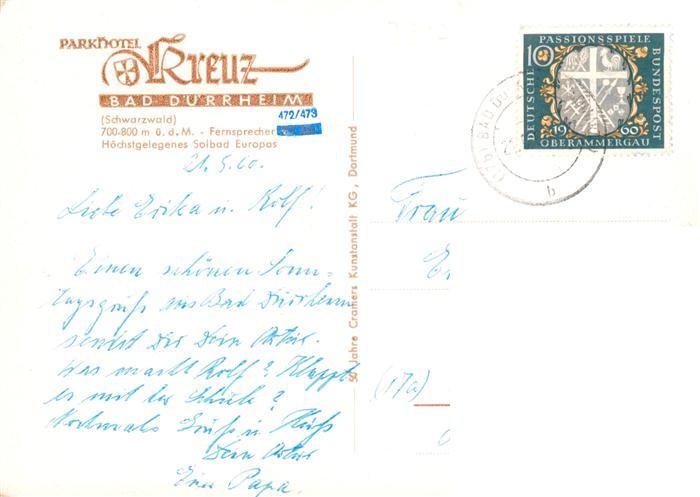 PARKHOTEL
Kreuz
BAD DÜRRHEIM
(Schwarzwald) 472/473
700-800 m ü.d.M. - Fernsprecher
Höchstgelegenes Solbad Europas
21.5.60.
Liebe Erika u. Rolf!
Einen schönen Sonn-
tagsgruß aus Bad Dürrheim
sendet Dir Dein Artur.
Was macht Rolf? Klappt
es mit der Schule?
Nochmals Gruß u. Kuß
Dein Artur
Euer Papa.
50 Jahre Cramers Kunstanstalt KG, Dortmund
PASSIONSSPIELE
10
DEUTSCHE
BUNDESPOST
1960
OBERAMMERGAU
(17b) BAD DÜ
b
Frau
(17a)